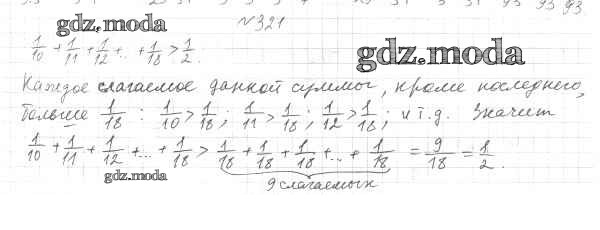 №321
gdz.moda
1/10 + 1/11 + 1/12 + ... + 1/18 > 1/2.
gdz.moda
Каждое слагаемое данной суммы, кроме последнего,
больше 1/18 : 1/10 > 1/18; 1/11 > 1/18; 1/12 > 1/18; и т.д. Значит
1/10 + 1/11 + 1/12 + ... + 1/18 > 1/18 + 1/18 + 1/18 + ... + 1/18 = 9/18 = 1/2.
gdz.moda
9 слагаемых